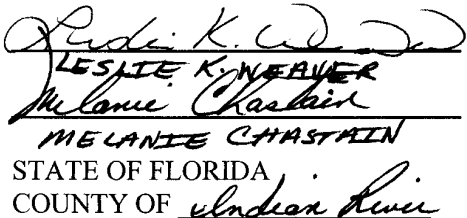 Leslie K. Weaver
LESLIE K. WEAVER
Melanie Chastain
MELANIE CHASTAIN
STATE OF FLORIDA
COUNTY OF Indian River